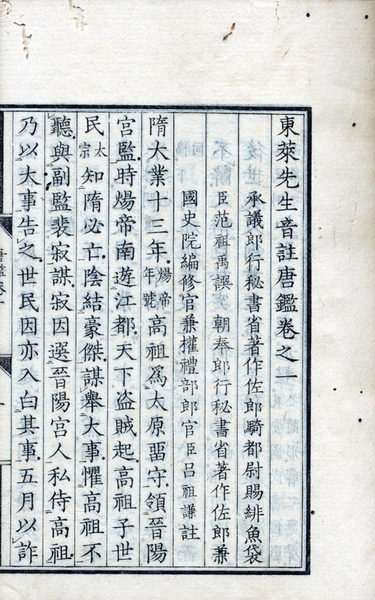 東萊先生音註唐鑑卷之一
承議郎行秘書省著作佐郎騎都尉賜緋魚袋
臣范祖禹譔　朝奉郎行秘書省著作佐郎兼
國史院編修官兼權禮部郎官臣呂祖謙註
隋大業十三年煬帝年號高祖為太原畱守領晉陽
宮監時煬帝南遊江都天下盗賊起高祖子世
民太宗知隋必亡陰結豪傑謀舉大事懼高祖不
聽與副監裴寂謀寂因選晉陽宮人私侍高祖
乃以大事告之世民因亦入白其事五月以詐